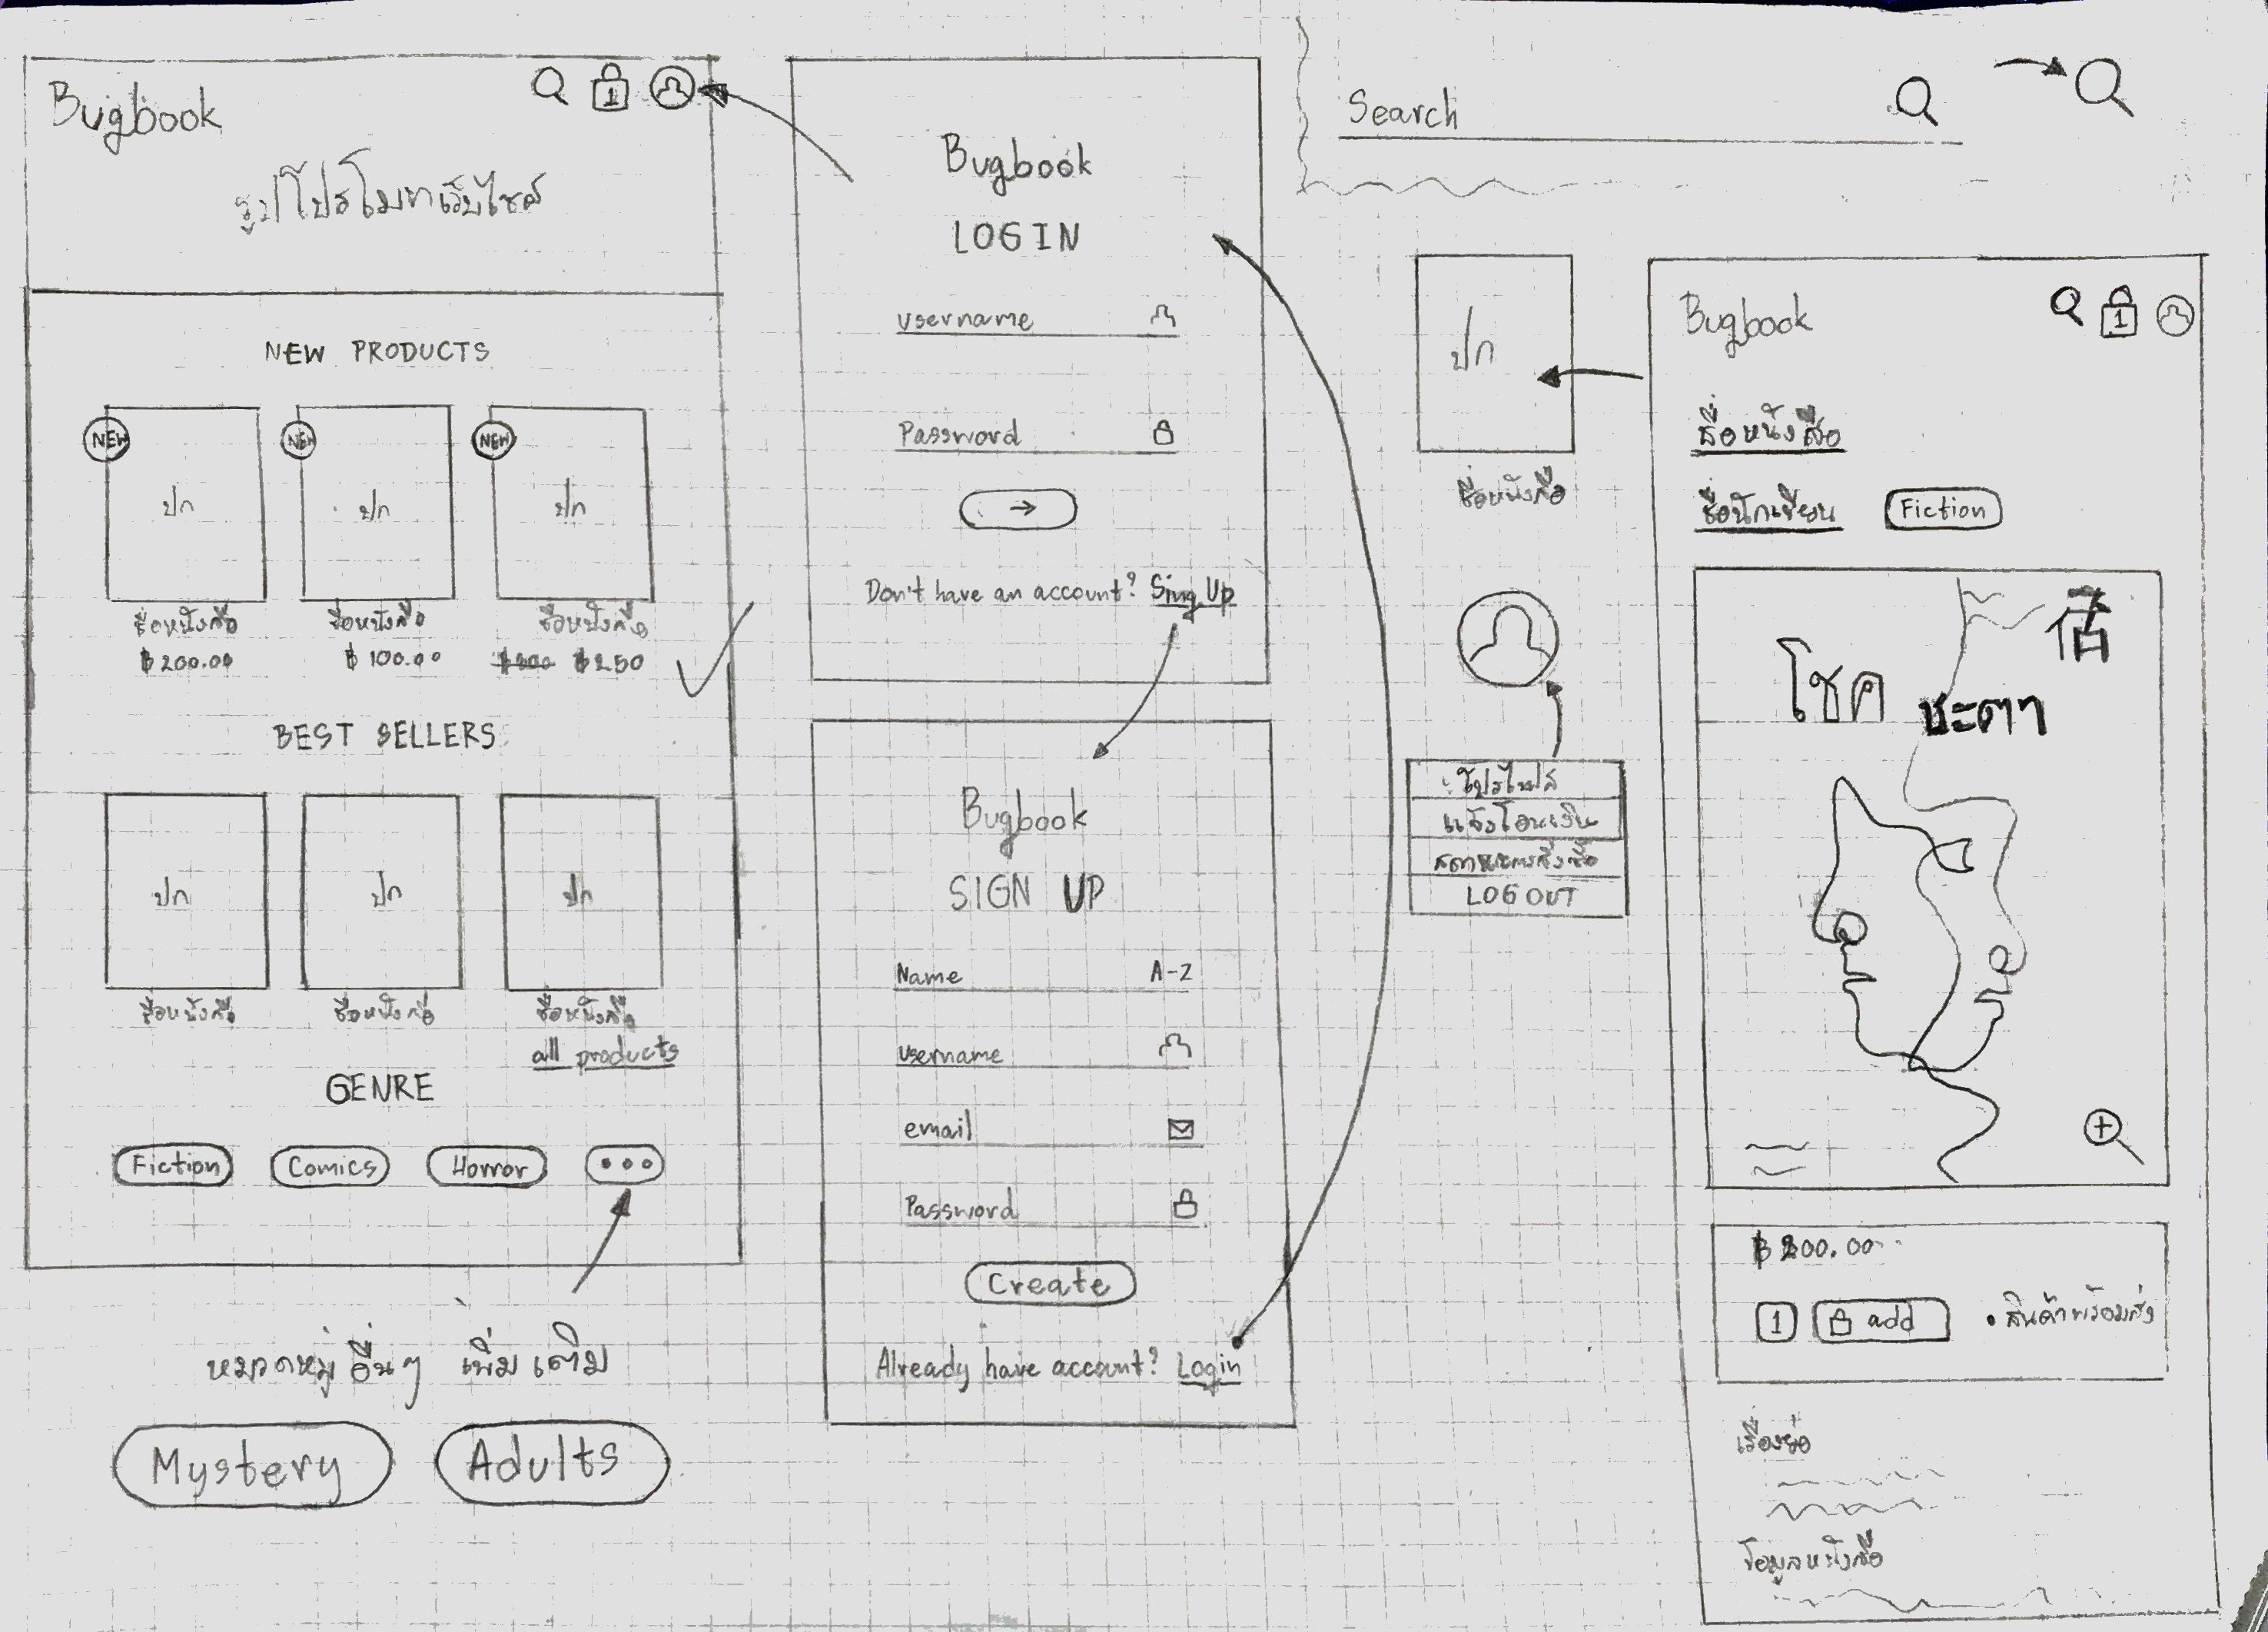 Bugbook
1
รูปโปรโมทเว็บไซส์
NEW PRODUCTS
NEW NEW NEW
ปก ปก ปก
ชื่อหนังสือ ชื่อหนังสือ ชื่อหนังสือ
฿200.00 ฿100.00 ฿300 ฿250
BEST SELLERS
ปก ปก ปก
ชื่อหนังสือ ชื่อหนังสือ ชื่อหนังสือ
all products
GENRE
Fiction Comics Horror
หมวดหมู่อื่นๆ เพิ่มเติม
Mystery Adults
Bugbook
LOGIN
username
Password
Don't have an account? Sing Up
Bugbook
SIGN UP
Name A-Z
username
email
Password
Create
Already have account? Login
Search
ปก
ชื่อหนังสือ
โปรไฟล์
แจ้งโอนเงิน
สถานะการสั่งซื้อ
LOGOUT
Bugbook
1
ชื่อหนังสือ
ชื่อนักเขียน Fiction
โชค
ชะตา
฿200.00
1 add • สินค้าพร้อมส่ง
เรื่องย่อ
ข้อมูลหนังสือ